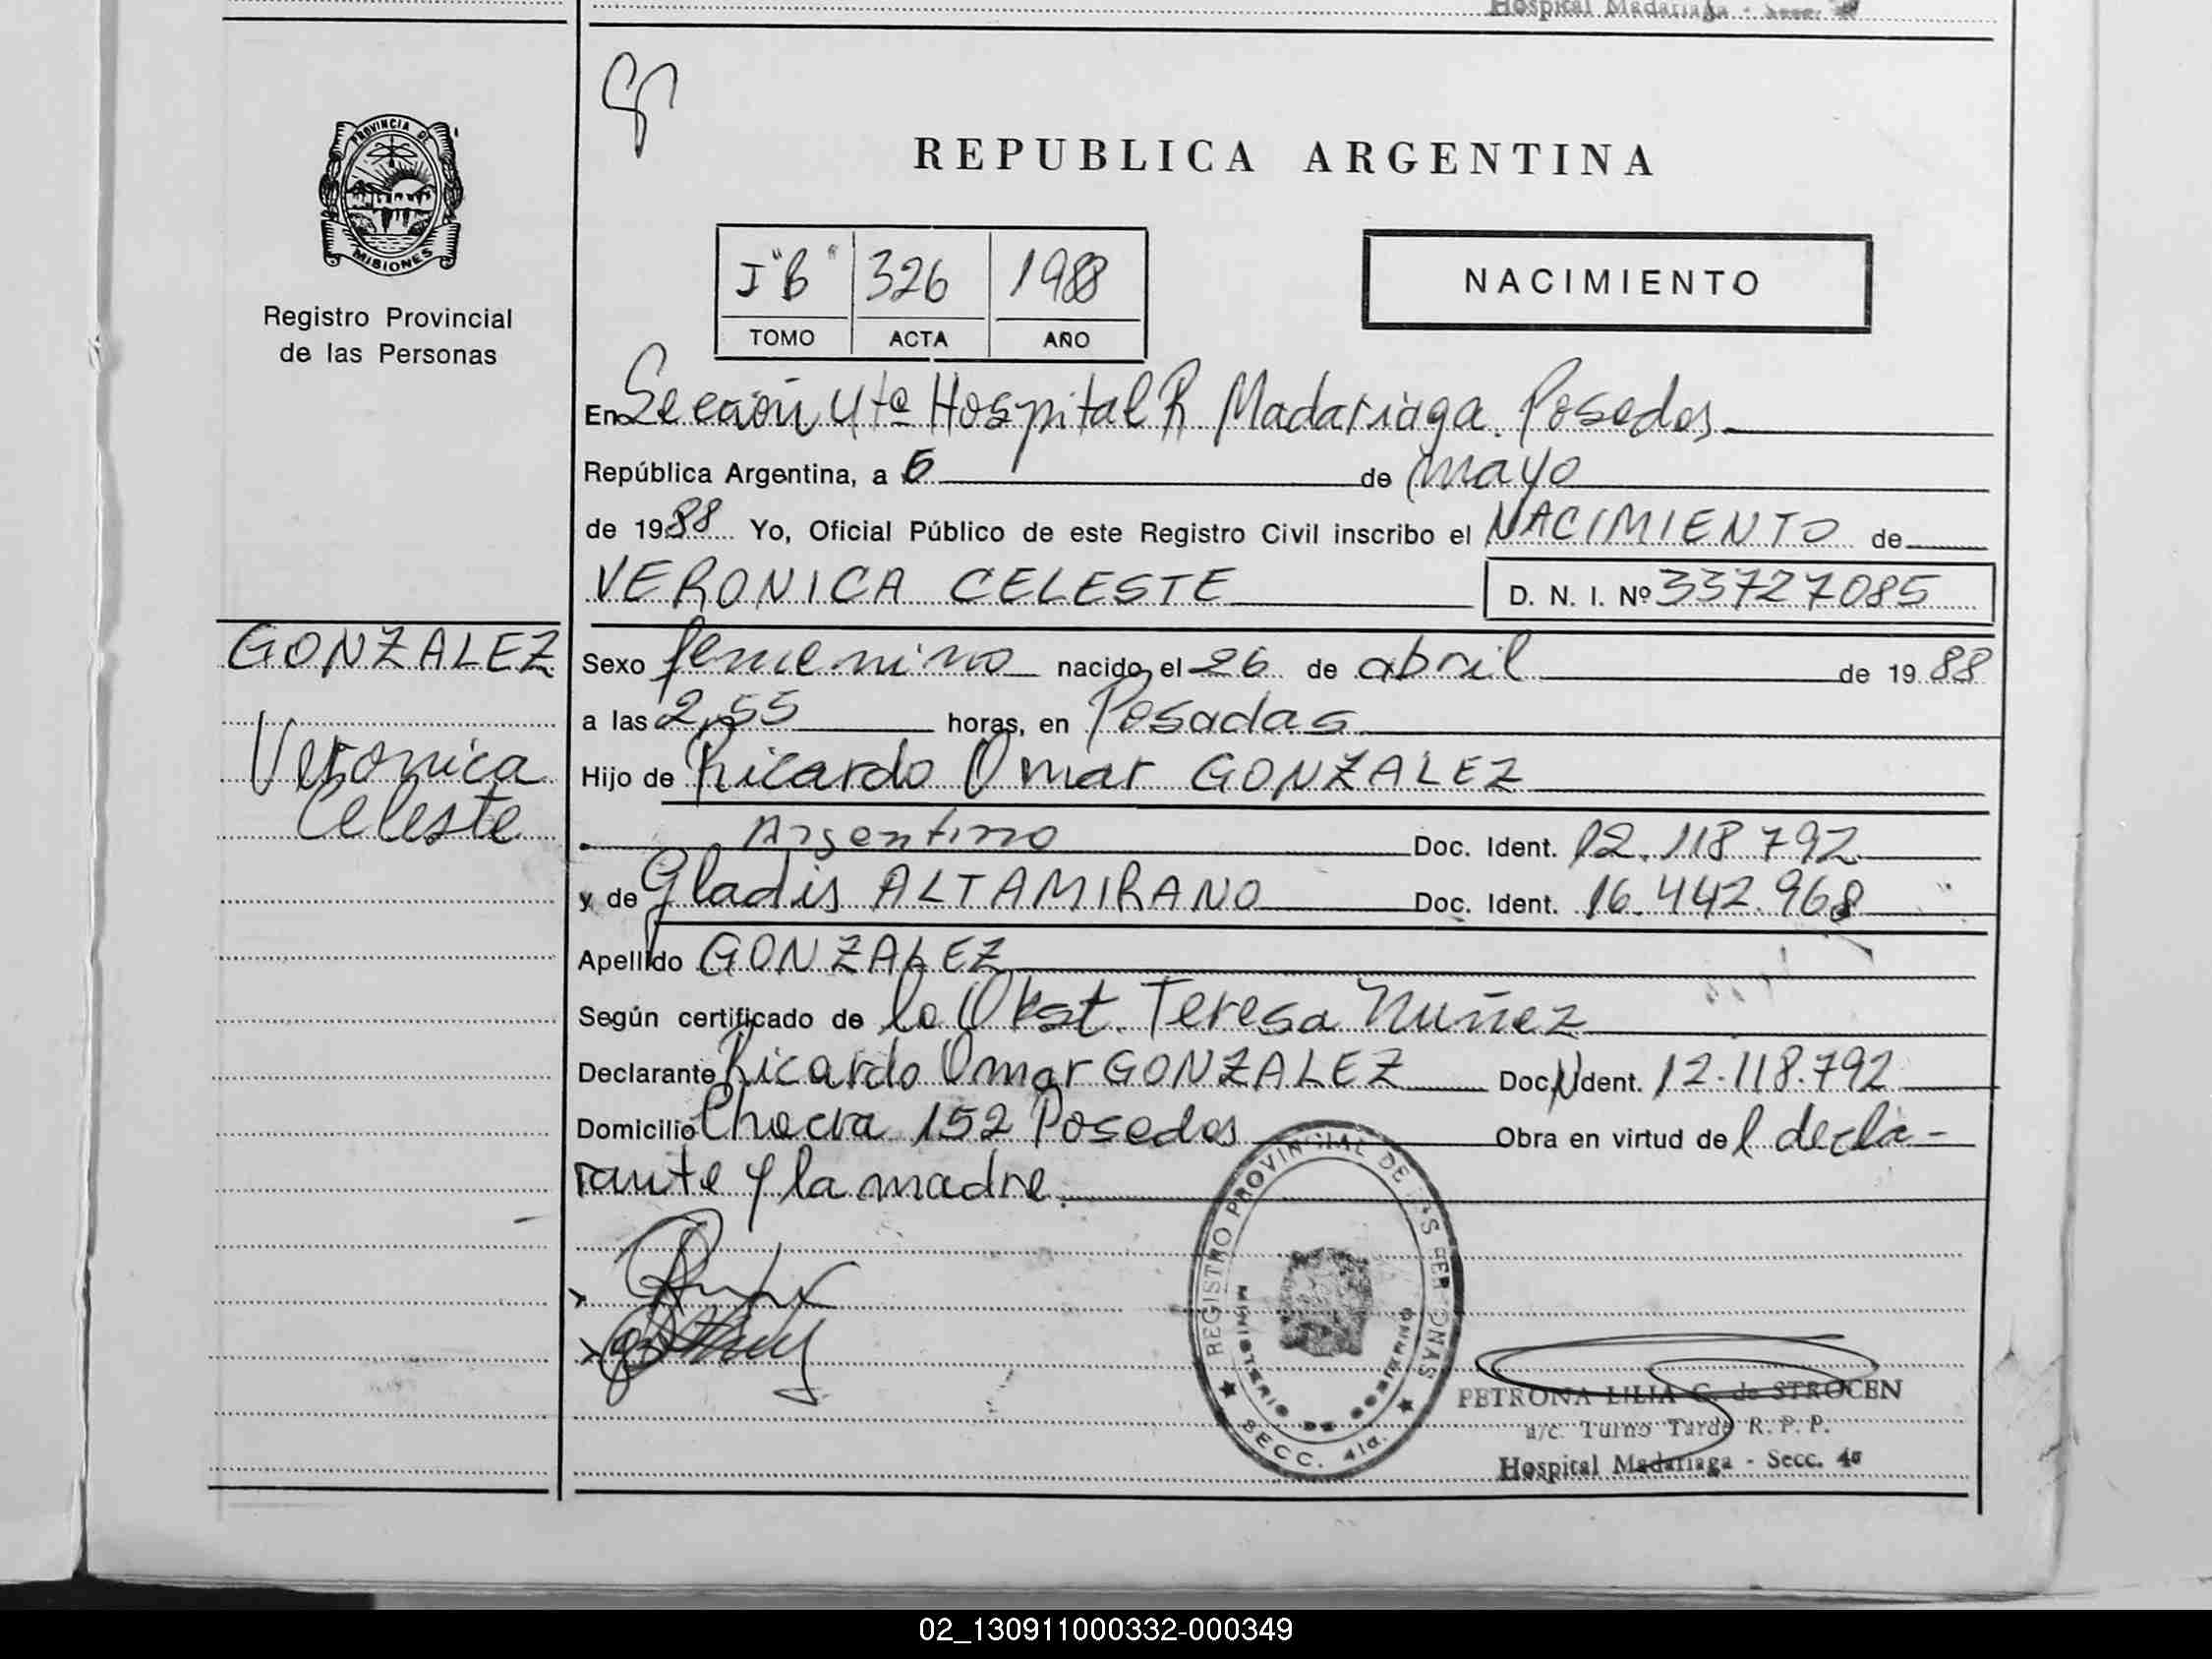 Hospital Madariaga - Secc.
PROVINCIA DE
MISIONES
Registro Provincial
de las Personas
REPUBLICA ARGENTINA
I "B" 326 1988
TOMO ACTA AÑO
NACIMIENTO
En Sección 4ta Hospital R Madariaga. Posadas
República Argentina, a 6 de mayo
de 1988 Yo, Oficial Público de este Registro Civil inscribo el NACIMIENTO de
VERONICA CELESTE D. N. I. Nº 33727085
GONZALEZ
Veronica
Celeste
Sexo femenino nacido el 26 de abril de 1988
a las 2,55 horas, en Posadas
Hijo de Ricardo Omar GONZALEZ
Argentino Doc. Ident. 12.118.792
y de Gladis ALTAMIRANO Doc. Ident. 16.442.968
Apellido GONZALEZ
Según certificado de la Obst. Teresa Nuñez
Declarante Ricardo Omar GONZALEZ Doc. Ident. 12.118.792
Domicilio Chacra 152 Posadas Obra en virtud del decla-
rante y la madre.
REGISTRO PROVINCIAL DE LAS PERSONAS
MINISTERIO DE GOBIERNO
SECC. 4ta.
PETRONA LILIA C. de STROCEN
a/c. Turno Tarde R. P. P.
Hospital Madariaga - Secc. 4ª
02_130911000332-000349